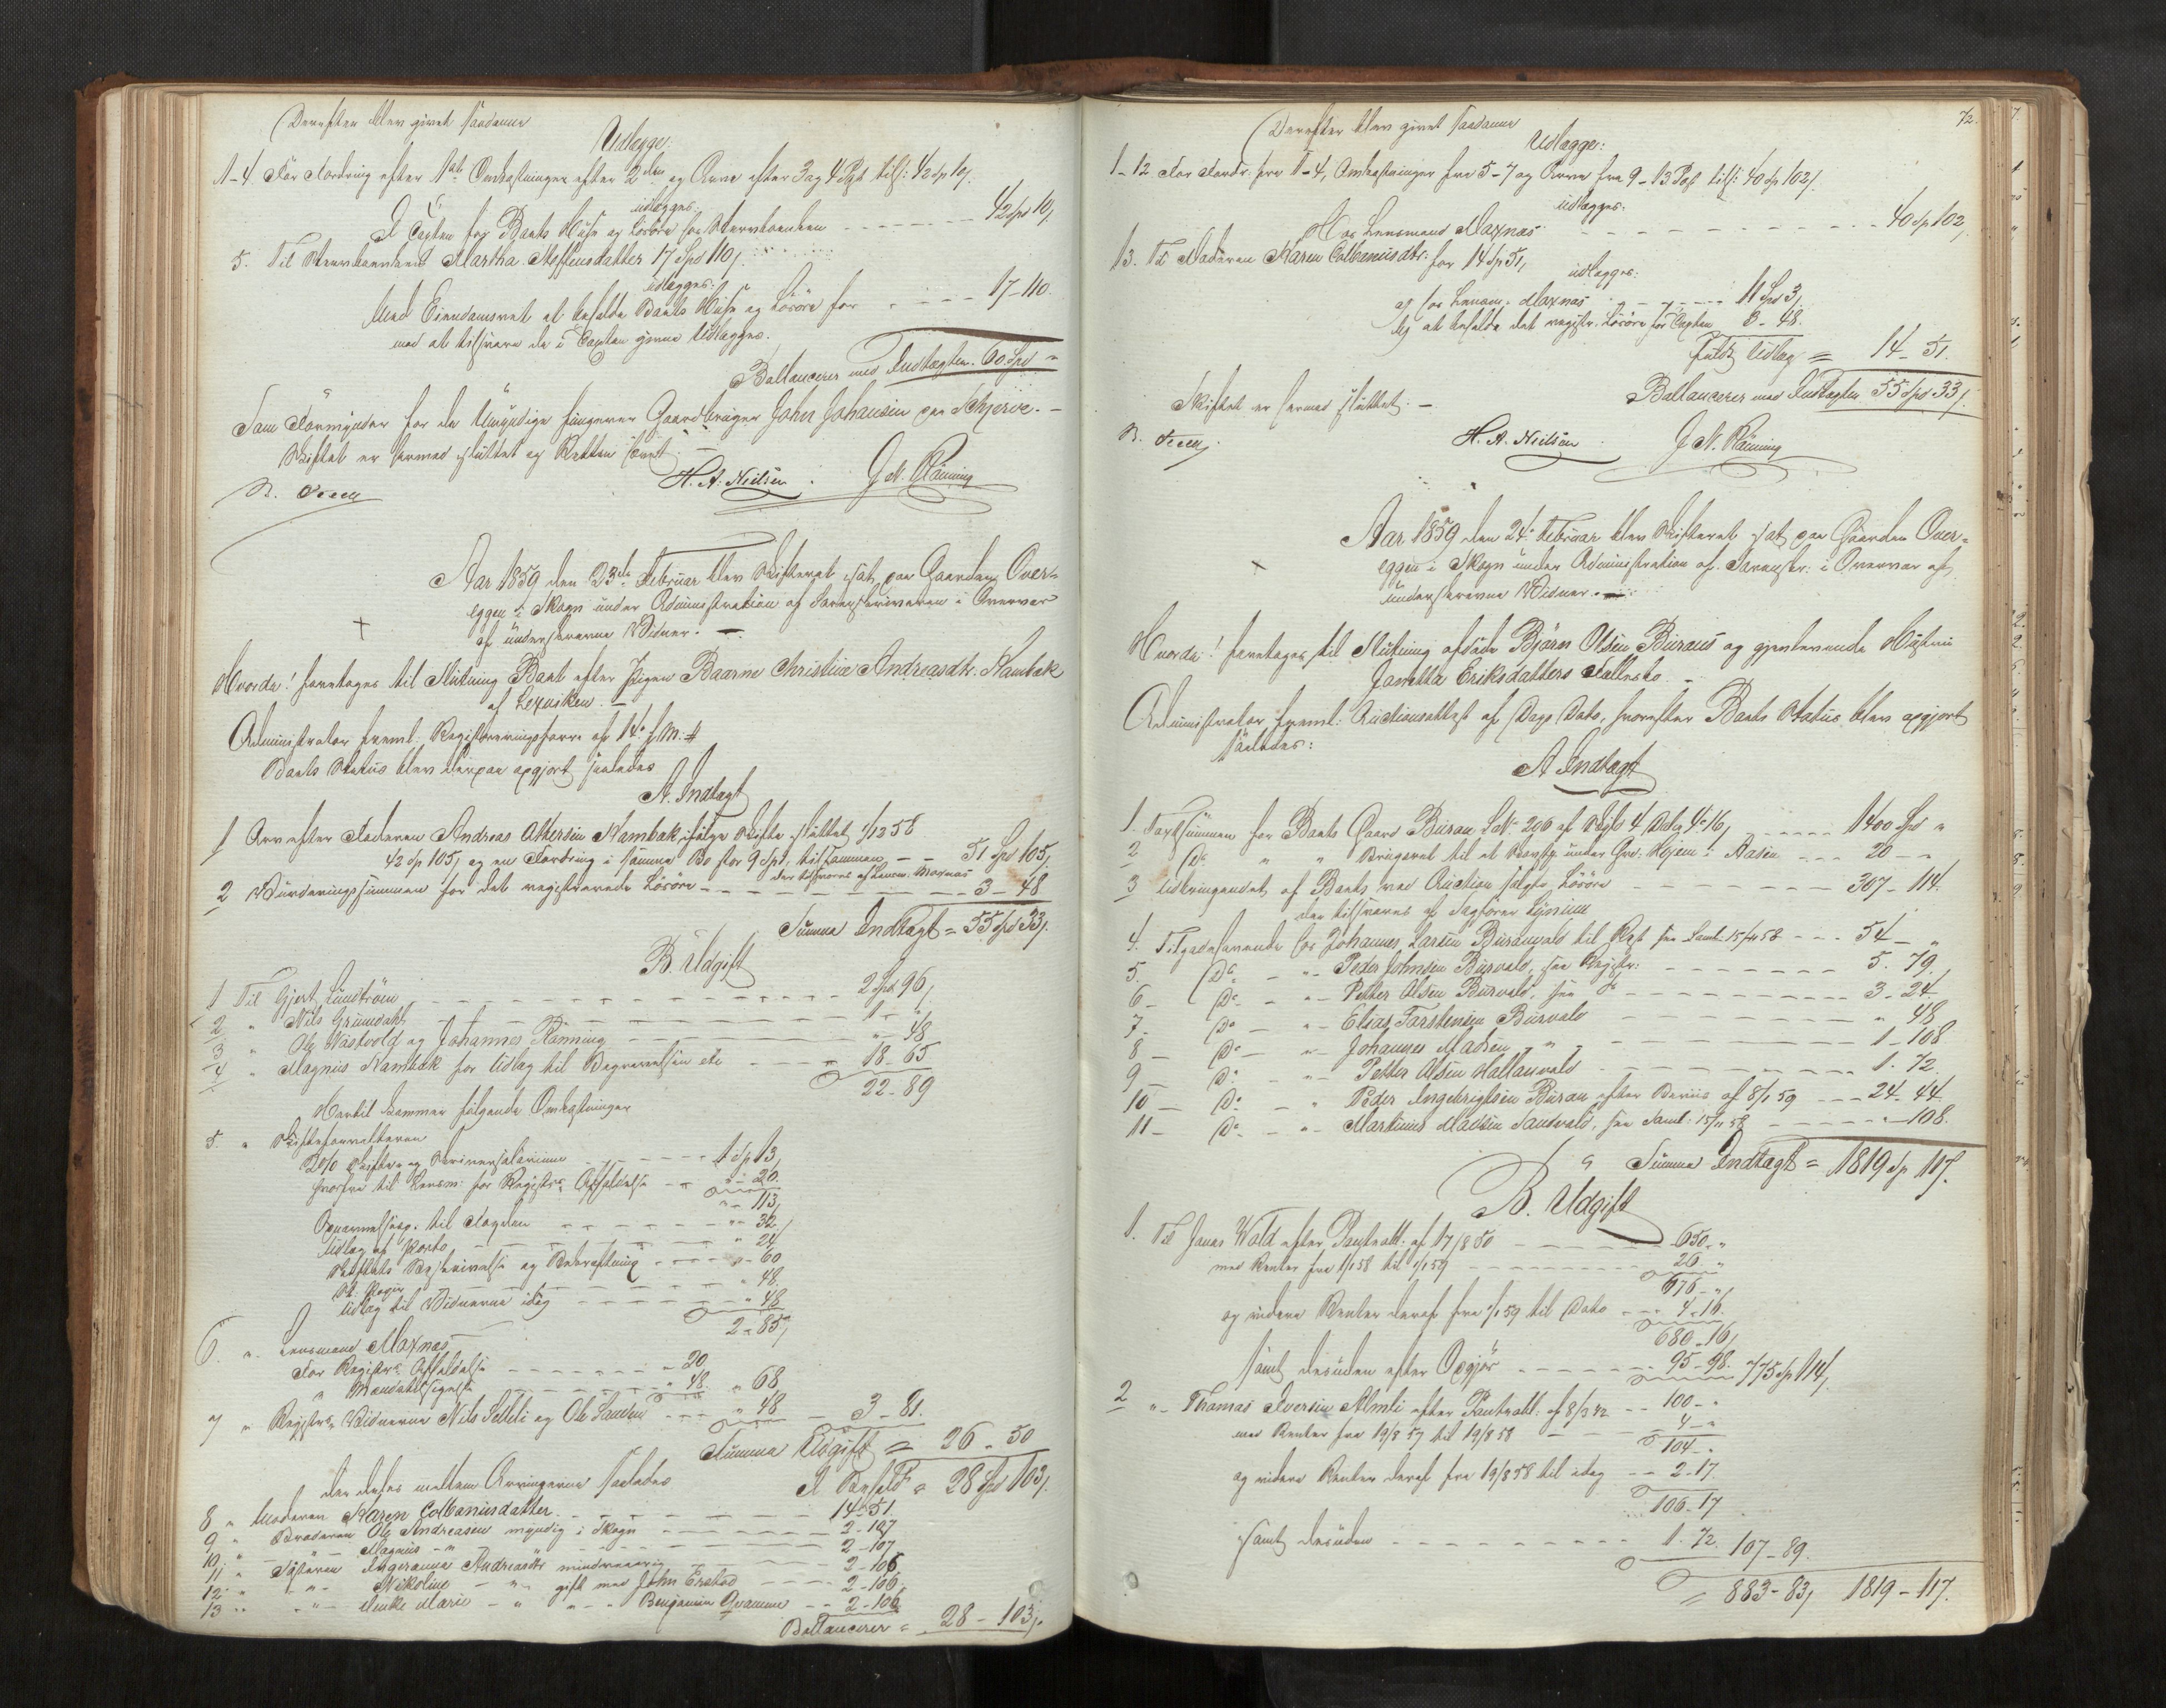 Derefter blev givet saadanne
Udlægge:
1-4. For Fordring efter 1st Omkostninger efter 2den og Arve efter 3 og 4 Post tils: 42 Sp 10,
udlægges:
I Cassen for Boets Huse og Løsøre hos Stervboenken - - - 42 Spd 10,
5. Til Stervboenken Martha Steffensdatter 17 Spd 110,
udlægges:
Med Eiendomsret at beholde Boets Huse og Løsøre for - - - 17-110.
mod at tilsvare de i Cassen givne Udlægge.
Ballancerer med Indtægten. 60 Spd "
Som Formynder for de Umyndige fungerer Gaardbruger John Johansen paa Schjerve. -
Skiftet er hermed sluttet og Retten hævet -
N.
H. A. Nielsen. J N. Ränning
Aar 1859 den 23de Februar blev Skifteret sat paa Gaarden Over-
eggen i Skogn under Administration af Sorenskriveren i Overvær
af underskrevne Vidner. -
Hvorda! foretoges til Slutning Boet efter Pigen Baarne Christine Andreasdtr. Hambak
af Lexviken. -
Administrator freml. Registreringsforr. af 14de f. M. #
Boets Status blev derpaa opgjort saaledes
A. Indtægt
1 Arv efter Faderen Andreas Athersen Hambak ifølge Skifte sluttet 1/12 58
42 Sp 105, og en Fordring i samme Bo stor 9 Spd, tilsammen - - 51 Spd 105,
der tilsvares af Lensm. Moxnæs
2 Vurderingssummen for det registrerede Løsøre - - - 3-48
Summa Indtægt = 55 Spd 33,
B. Udgift
1 Til Gjert Lundtrøen - - - 2 Spd 96,
2 " Nils Grundahl - - - 1 - "
3 " Ole Nåstvold og Johannes Rønning - - - " - 48
4 " Magnus Hambak for Udlæg til Begravelsen etc - - 18-65
22-89
Hertil kommer følgende Omkostninger
5. " Skifteforvalteren
2% Skifte- og Skriversalarium - - - 1 Sp 13,
hvorfra til Lensm: for Registrs Afholdelse - - " - 20.
" - 113,
Oppevarelsesp. til Fogden - - - " - 32,
Udlæg af Porto - - - " 24
Skiftets Beskrivelse og Bekræftning - - - " - 60
St. Papir - - - " 48.
Udlæg til Vidnerne idag - - - " 48
2-85,
6. " Lensmand Moxnæs
For Registrs Afholdelse - - - " 20
" - - - " 48. " 68
7 " Registrs Vidnerne Nils Selleli og Ole Sanden - - - " 48 - 3-81.
Summa Udgift = 26-50
I Behold = 28 Spd 103,
der deles mellem Arvingerne saaledes
8 " Moderen Karen Colbenusdatter - - - 14-51.
9 " Broderen Ole Andreasen myndig i Skogn - - - 2-107
10. " " Magnus - " - - - 2-107
11 " Søsteren Ingeranna Andreasdtr mindreaarig - - - 2-106
12. " " Nikoline - " - gift med John Erstad - - - 2-106,
13 " " Anke Marie - " " Benjamin Qvamme - - 2-106
Ballancerer = 28-103,
72.
Derefter blev givet saadanne
Udlægge:
1-12 For Fordr: fra 1-4, Omkostninger fra 5-7 og Arve fra 9-13 Post tils: 40 Sp 102,
udlægges:
Hos Lensmand Moxnæs - - - 40 Sp 102,
13. Til Moderen Karen Colbenusdtr: for 14 Sp 51,
udlægges:
af hos Lensm: Moxnæs - - - 11 Spd 3,
og at beholde det registr. Løsøre for Taxten 3-48.
fuldt Udlæg = 14-51.
Ballancerer med Indtægten 55 Spd 33,
Skiftet er hermed sluttet. -
N.
H. A. Nielsen J N. Ränning
Aar 1859 den 24de Februar blev Skifteret sat paa Gaarden Over-
eggen i Skogn under Administration af Sorenskr: i Overvær af
underskrevne Vidner. -
Hvorda! foretoges til Slutning afdøde Bjørn Olsen Buraus og gjenlevende Hustru
Janetta Eriksdatters Fællesbo. -
Administrator freml: Auctionsattest af Dags Dato, hvorefter Boets Status blev opgjort
saaledes:
A Indtægt
1. Taxtsummen for Boets Gaard Burau L.N. 206 af Skyld 4 Daler 4-16, - - 1400 Spd "
2 Do " " Brugsret til et Pladsstg under Grd: Hojem i Aasen - - - 20 - "
3 Udbringendet af Boets ved Auction solgte Løsøre - - - 307-114.
der tilsvares af Sagfører Lynum
4. Tilgodehavende hos Johannes Larsen Burauvald til Rest fra Saml. 15/11 58 - - - 54 - "
5. Do - "- Peder Johnsen Burvald, fra Registr: - - - 5. 79,
6 - Do - "- Petter Olsen Burvald, fra Do - - - 3-24
7. Do - "- Elias Torstensen Burvald - - - " 48
8 - Do - "- Johannes Madsen - " - - - 1-108
9 Do - "- Petter Olsen Hallanvald - - - 1. 72.
10 - Do - " Peder Ingebrigtsen Burau efter Beviis af 8/1 59 - - - 24-44
11 - Do - "- Martinus Madsen Sandvald, fra Saml: 15/11 58 - - - " - 108.
Summa Indtægt = 1819 Sp 117.
B. Udgift
1. Til Jonas Wold efter Panteobl: af 17/8 50 - - - 650. "
med Renter fra 1/1 58 til 1/1 59 - - - 26. "
676 - "
og videre Renter deraf fra 1/1 59 til Dato - - - 4-16.
680-16,
samt desuden efter Opgjør - - - 95-98. 775 Sp 114,
2 "- Thomas Iversen Almli efter Panteobl: af 8/3 42 - - 100 - "
med Renter fra 19/8 57 til 19/8 58 - - - 4 - "
104 - "
og videre Renter deraf fra 19/8 58 til idag - - 2-17.
106-17
samt desuden - - - 1. 72. 107-89.
= 883-83, 1819-117.